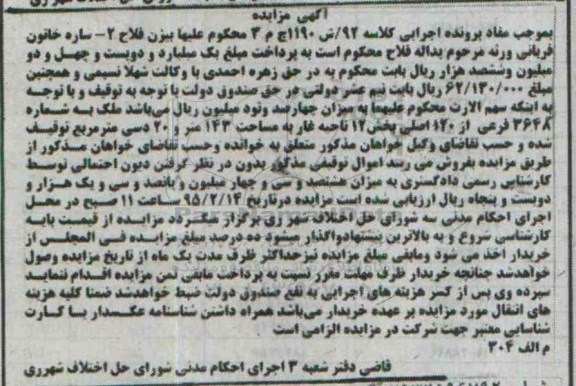 آگهی مزایده
بموجب مفاد پرونده اجرایی کلاسه ۹۲/ش ۱۱۹۰ج م ۳ محکوم علیها بیژن فلاح ۲- ساره خاتون
قربانی ورثه مرحوم یداله فلاح محکوم است به پرداخت مبلغ یک میلیارد و دویست و چهل و دو
میلیون وششصد هزار ریال بابت محکوم به در حق زهره احمدی با وکالت شهلا نسیمی و همچنین
مبلغ ۶۲/۱۳۰/۰۰۰ ریال بابت نیم عشر دولتی در حق صندوق دولت با توجه به توقیف و با توجه
به اینکه سهم الارث محکوم علیهما به میزان چهارصد ونود میلیون ریال می‌باشد ملک به شماره
۳۶۴۸ فرعی از ۱۲۰ اصلی بخش۱۲ ناحیه غار به مساحت ۱۴۳ متر و ۲۰ دسی مترمربع توقیف
شده و حسب تقاضای وکیل خواهان مذکور متعلق به خوانده وحسب تقاضای خواهان مذکور از
طریق مزایده بفروش می رسد اموال توقیفی مذکور بدون در نظر گرفتن دیون احتمالی توسط
کارشناس رسمی دادگستری به میزان هشتصد و سی و چهار میلیون و پانصد و سی و یک هزار و
دویست و پنجاه ریال ارزیابی شده است مزایده درتاریخ ۹۵/۲/۱۴ ساعت ۱۱ صبح در محل
اجرای احکام مدنی سه شورای حل اختلاف شهر ری برگزار میگردد مزایده از قیمت پایه
کارشناسی شروع و به بالاترین پیشنهادواگذار میشود ده درصد مبلغ مزایده فی المجلس از
خریدار اخذ می شود ومابقی مبلغ مزایده نیزحداکثر ظرف مدت یک ماه از تاریخ مزایده وصول
خواهدشد چنانچه خریدار ظرف مهلت مقرر نسبت به پرداخت مابقی ثمن مزایده اقدام ننماید
سپرده وی پس از کسر هزینه های اجرایی به نفع صندوق دولت ضبط خواهدشد ضمنا کلیه هزینه
های انتقال مورد مزایده بر عهده خریدار می‌باشد همراه داشتن شناسنامه عکسدار یا کارت
شناسایی معتبر جهت شرکت در مزایده الزامی است
م الف ۳۰۴
قاضی دفتر شعبه ۳ اجرای احکام مدنی شورای حل اختلاف شهرری